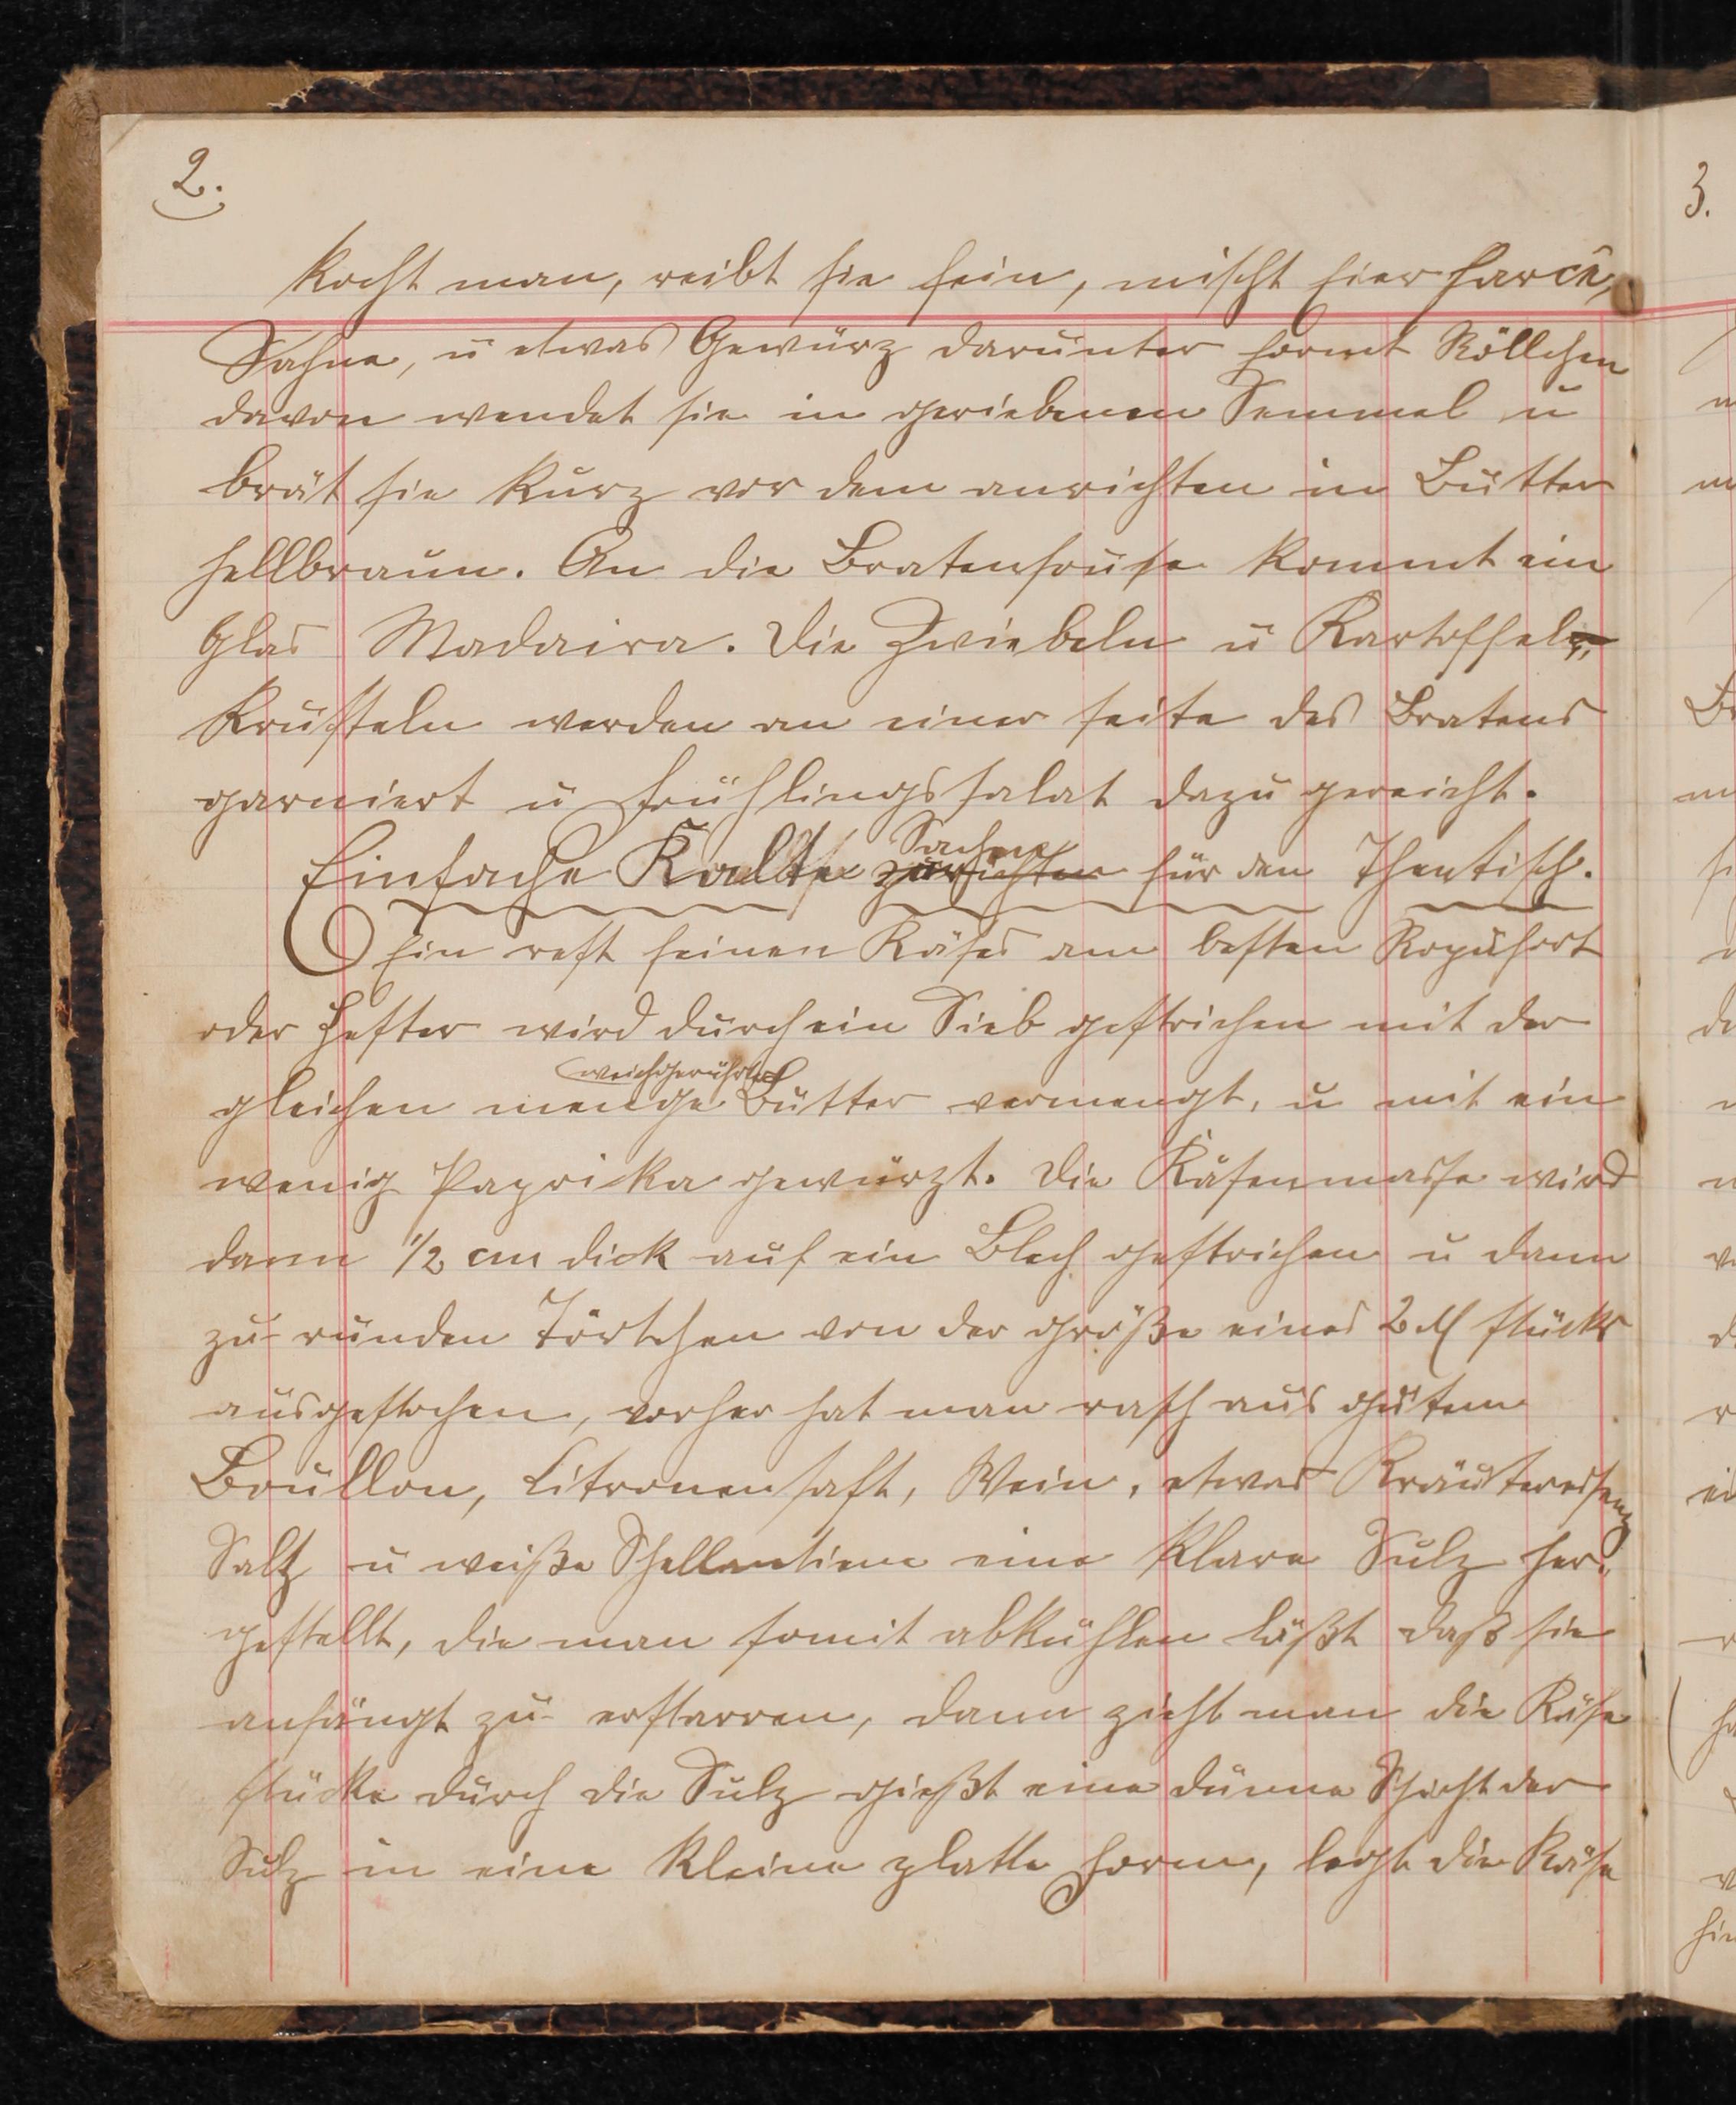 2.
kocht man, reibt sie fein, mischt hier farcè,
Sahne, u etwas Gewürz darunter formt Röllchen
davon wendet sie in geriebenen Semmel u
brät sie kurz vor dem anrichten in Butter
hellbraun. An die Bratensouse kommt ein
Glas Madaira. Die Zwiebeln u Kartoffel„
krusteln werden an einer seite des Bratens
garniert u frühlingssalat dazu gereicht.
Einfache Kalte Sachen für den Theetisch.
Ein rest feinen Käses am besten Roquefort
oder Hester wird durch ein Sieb gestrichen mit der
weichgerührter
gleichen menge Butter vermengt, u mit ein
wenig Paprika gewürzt. Die Käsenmasse wird
dann 1/2 cm dick auf ein Blech gestrichen u dann
zu runden Törtchen von der größe eines 2 M stücks
ausgestochen, vorher hat man rasch aus gutem
Boullon, Citronensaft, Wein, etwas Kräuteressenz
Saltz u weiße Schellantiene eine klare Sulz her„
gestellt, die man somit abkühlen läßt daß sie
anfängt zu erstarren, dann zieht man die Käse
stücke durch die Sulz gießt eine dünne Schicht der
Sulz in eine kleine platte form, legt die Käse
3.